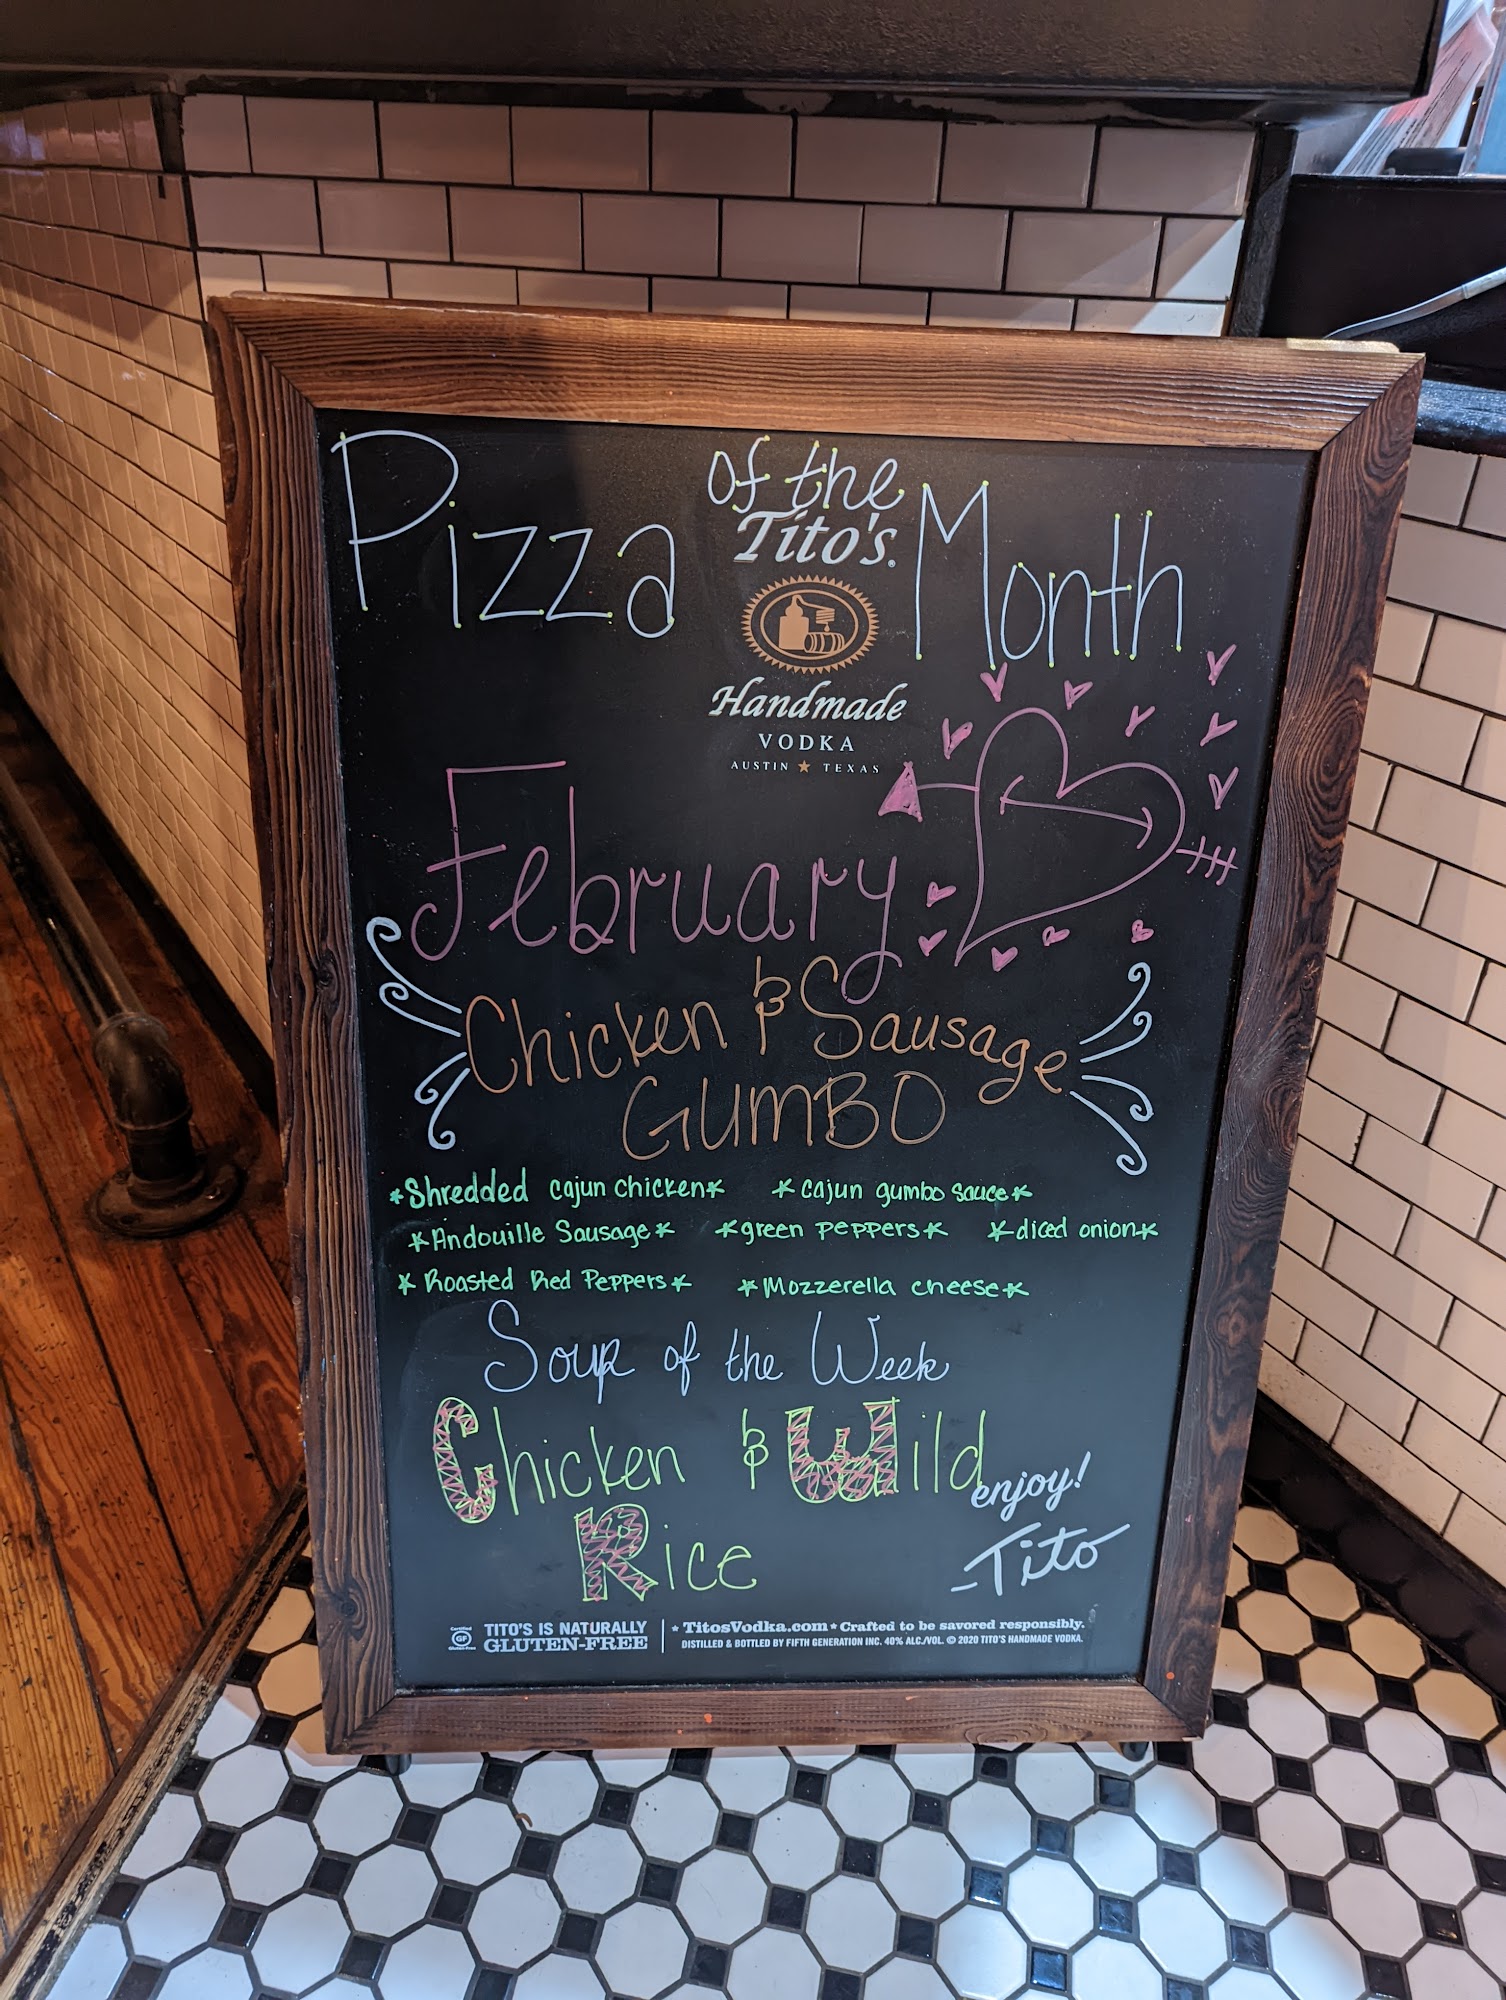 Pizza of the Month
Tito's®
Handmade
VODKA
AUSTIN ★ TEXAS
February
Chicken & Sausage
GUMBO
*Shredded Cajun Chicken* *Cajun gumbo sauce*
*Andouille Sausage* *green peppers* *diced onion*
*Roasted Red Peppers* *Mozzerella cheese*
Soup of the Week
Chicken & Wild
Rice
enjoy!
-Tito
Certified GF Gluten-Free
TITO'S IS NATURALLY
GLUTEN-FREE
* TitosVodka.com * Crafted to be savored responsibly.
DISTILLED & BOTTLED BY FIFTH GENERATION INC. 40% ALC./VOL. © 2020 TITO'S HANDMADE VODKA.